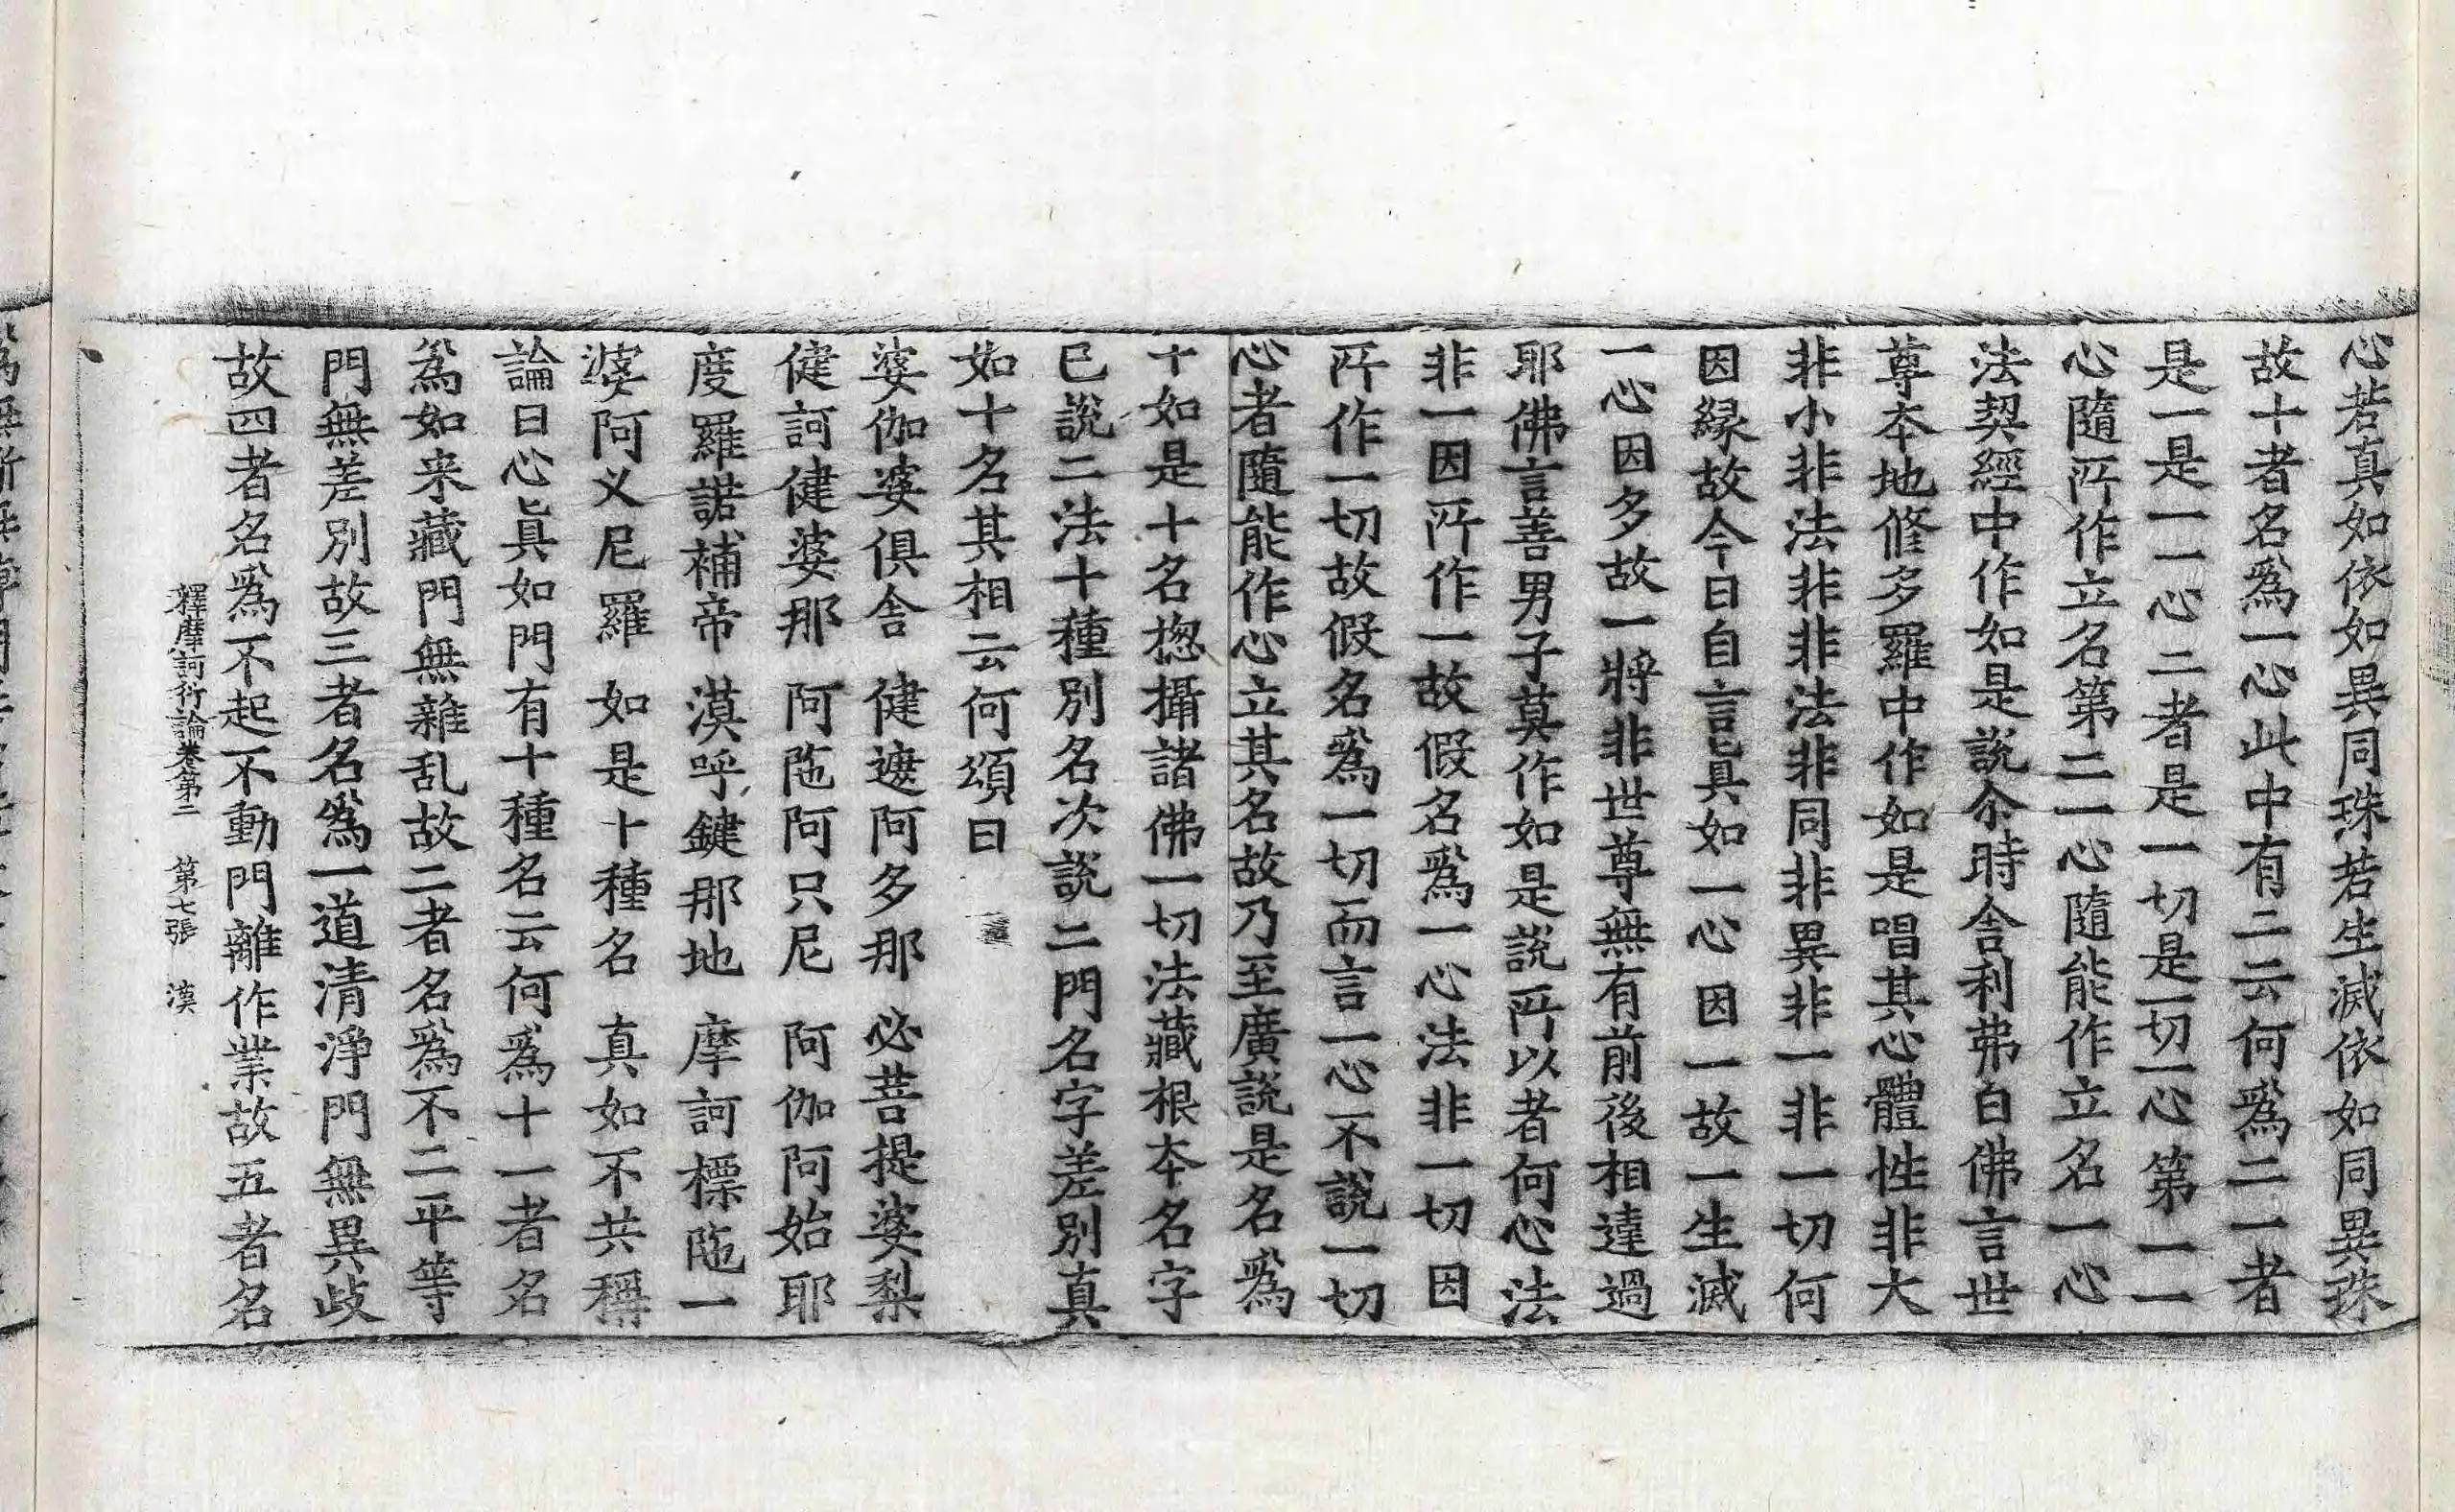 心若真如依如異同珠若生滅依如同異珠
故十者名為一心此中有二云何為二一者
是一是一一心二者是一切是一切一心第一一
心隨所作立名第二一心隨能作立名一心
法契經中作如是說尒時舍利弗白佛言世
尊本地修多羅中作如是唱其心體性非大
非小非法非非法非同非異非一非一切何
因緣故今日自言眞如一心因一故一生滅
一心因多故一將非世尊無有前後相違過
耶佛言善男子莫作如是說所以者何心法
非一因所作一故假名為一心法非一切因
所作一切故假名為一切而言一心不說一切
心者隨能作心立其名故乃至廣說是名為
十如是十名摠攝諸佛一切法藏根本名字
已說二法十種別名次說二門名字差別真
如十名其相云何頌曰
婆伽婆俱舍　健遮阿多那　必菩提婆梨
健訶健婆那　阿陁阿只尼　阿伽阿始耶
度羅諾補帝　漠呼鍵那地　摩訶標陁一
婆阿义尼羅　如是十種名　真如不共稱
論曰心眞如門有十種名云何為十一者名
為如来藏門無雜乱故二者名為不二平等
門無差別故三者名為一道清淨門無異歧
故四者名為不起不動門離作業故五者名
釋摩訶衍論卷第二　第七張　漠